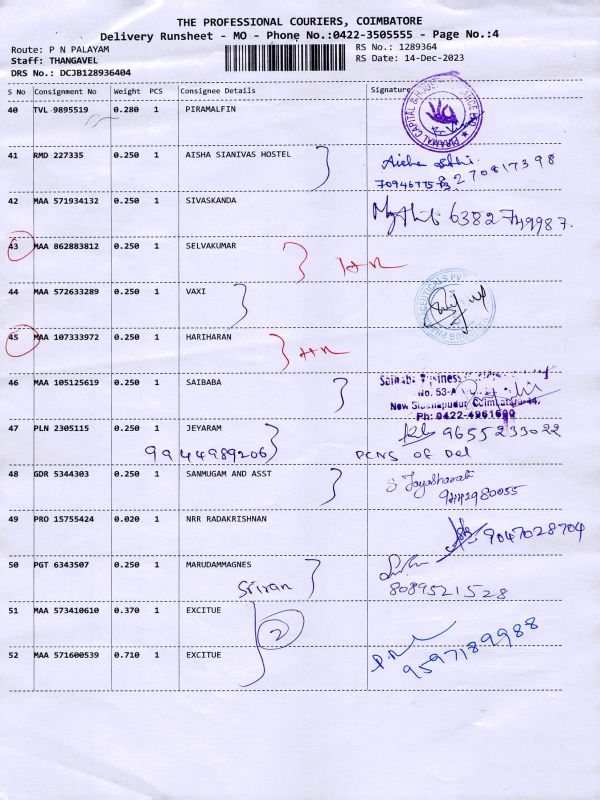 THE PROFESSIONAL COURIERS, COIMBATORE
Delivery Runsheet - MO - Phone No.:0422-3505555 - Page No.:4
Route: P N PALAYAM
RS No.: 1289364
Staff: THANGAVEL
RS Date: 14-Dec-2023
DRS No.: DCJB128936404
S No Consignment No Weight PCS Consignee Details Signature
40 TVL 9895519 0.280 1 PIRAMALFIN
PIRAMAL CAPITAL &
41 RMD 227335 0.250 1 AISHA SIANIVAS HOSTEL
42 MAA 571934132 0.250 1 SIVASKANDA
6382749987.
43 MAA 862883812 0.250 1 SELVAKUMAR
44 MAA 572633289 0.250 1 VAXI
45 MAA 107333972 0.250 1 HARIHARAN
46 MAA 105125619 0.250 1 SAIBABA
No. 53-A
New Siddhapudur, Coimbatore-44.
Ph: 0422-4961600
47 PLN 2305115 0.250 1 JEYARAM
9655233022
9944989206
48 GDR 5344303 0.250 1 SANMUGAM AND ASST
49 PRO 15755424 0.020 1 NRR RADAKRISHNAN
9047028704
50 PGT 6343507 0.250 1 MARUDAMMAGNES
Sriran
8089521528
51 MAA 573410610 0.370 1 EXCITUE
2
52 MAA 571600539 0.710 1 EXCITUE
9597189988